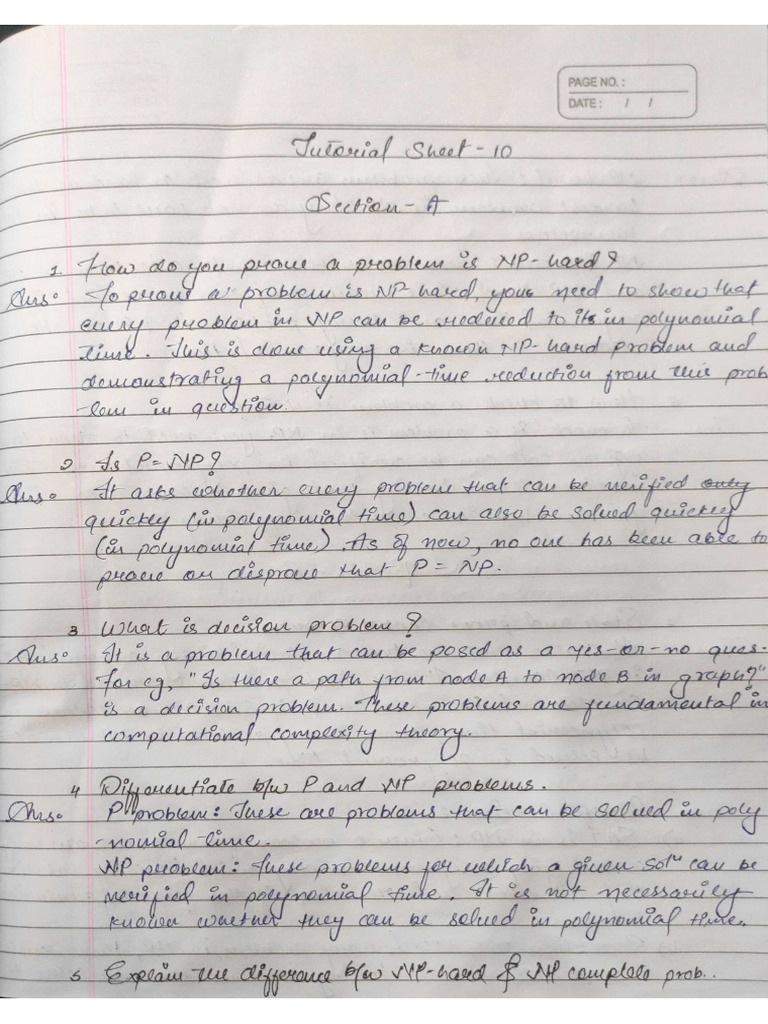 PAGE NO. :
DATE : / /
Tutorial Sheet - 10
Section - A
1. How do you prove a problem is NP-hard?
Ans: To prove a problem is NP-hard, you need to show that
every problem in NP can be reduced to it in polynomial
time. This is done using a known NP-hard problem and
demonstrating a polynomial-time reduction from this prob
lem in question.
2 Is P = NP?
Ans: It asks whether every problem that can be verified only
quickly (in polynomial time) can also be solved quickly
(in polynomial time). As of now, no one has been able to
prove or disprove that P = NP.
3 What is decision problem?
Ans: It is a problem that can be posed as a yes-or-no ques-
for eg, "Is there a path from node A to node B in graph?"
is a decision problem. These problems are fundamental in
computational complexity theory.
4 Differentiate b/w P and NP problems.
Ans: P problem: These are problems that can be solved in poly
-nomial time.
NP problem: These problems for which a given solⁿ can be
verified in polynomial time. It is not necessarily
known whether they can be solved in polynomial time.
5 Explain the difference b/w NP-hard & NP complete prob..